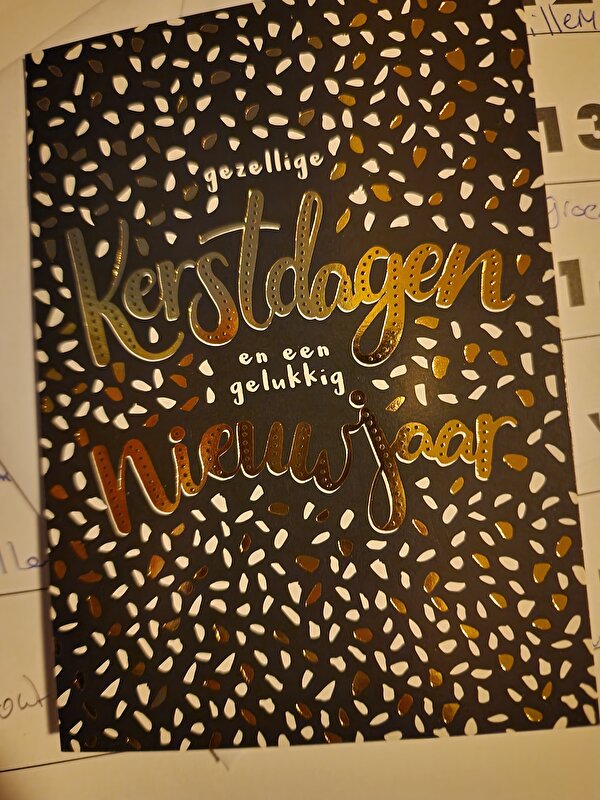 gezellige
Kerstdagen
en een
gelukkig
nieuwjaar
13